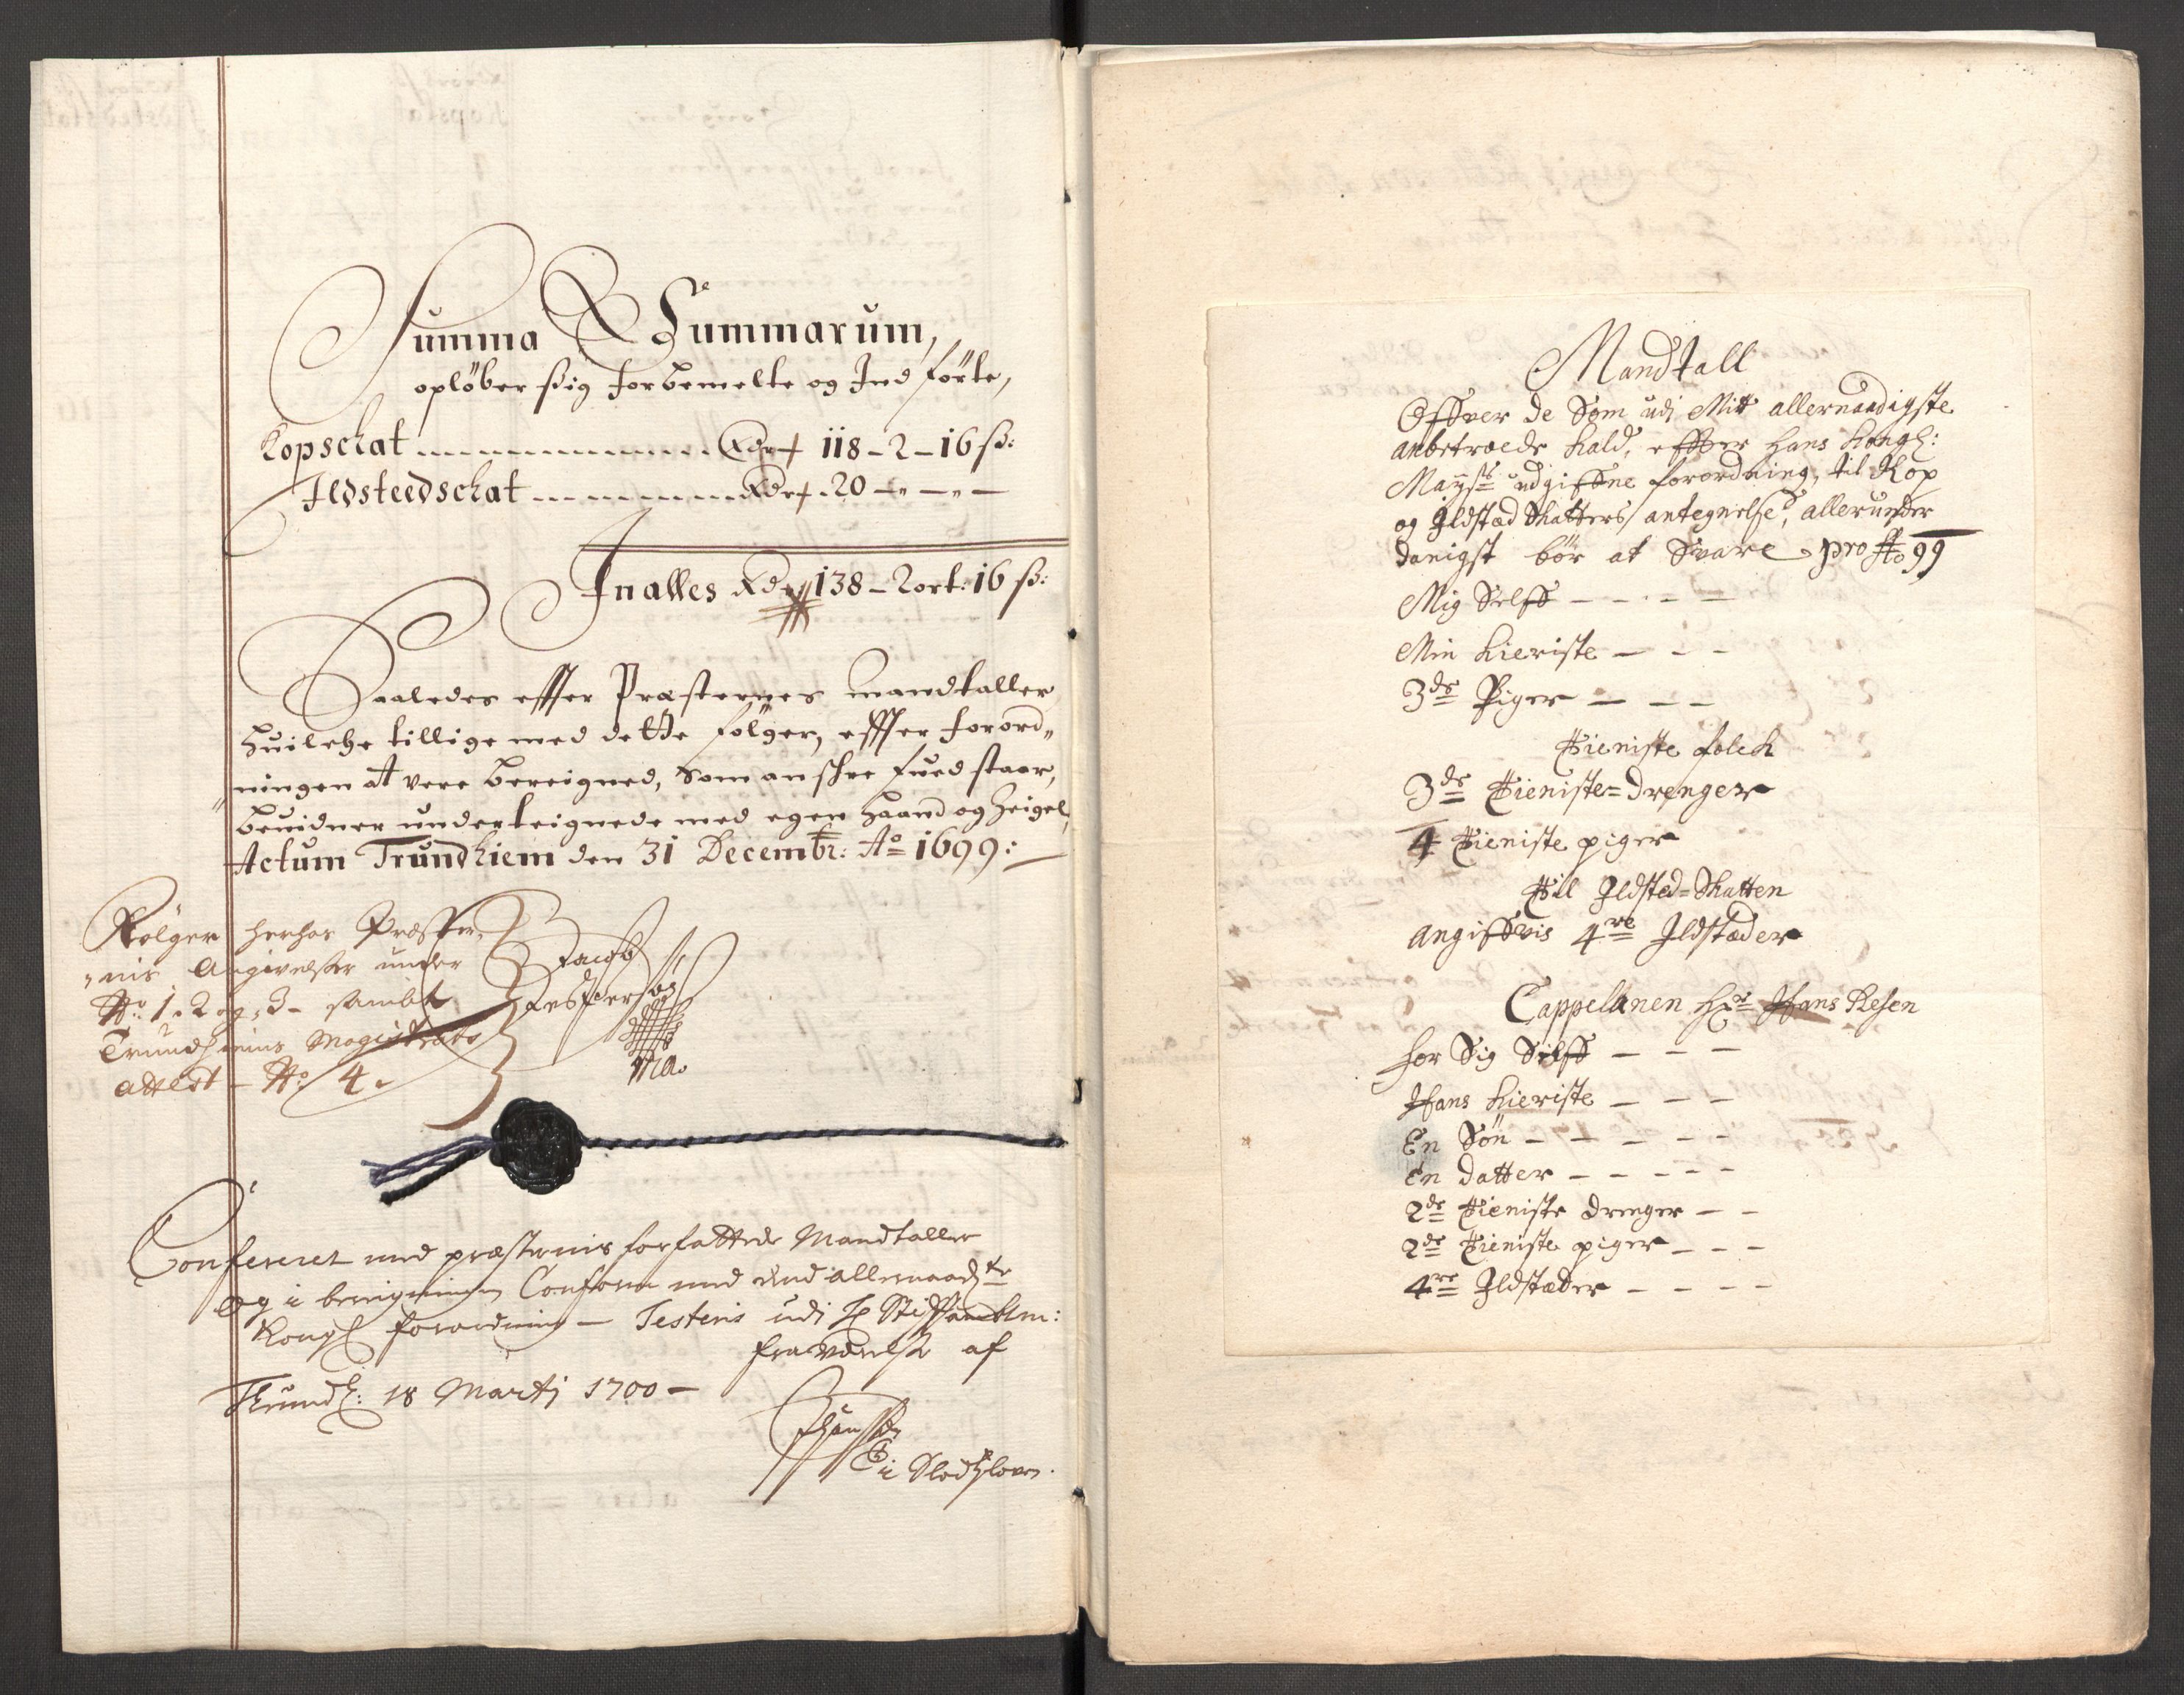 Summa Summarum,
opløber sig forbemelte og Indførte,
Kopschat Rdr 118-2-16 ß:
Ildsteedschat Rdr 20 - " - " -
In alles Rdr 138-2 ort: 16 ß:
Saaledes effter Præsternes mandtaller
huilche tillige med dette følger, effter forord-
ningen at vere bereigned, som anskrefued staar,
beuidner underteignede med egen haand og Zeigel,
Actum Trundhiem den 31 Decembr: Ao 1699:
Følger herhos Præster-
nis Angivelser under
No: 1. 2 og 3 - sambt
Trundhiems Magistrats
attest - No: 4.
Jacob
Jesperson
Ma.
Confereret med præsternis forfattede Mandtaller
og i beregningen Conform med dend allernaadste
Kongl forordning - Testeris udi H Stiftamtm:
fraværelse af
Trundh: 18 Martj 1700 -
i Slodtzloven.
Mandtall
Offver de Som udj Mit allernaadigste
anbetroede kald, effter Hans Kongl:
Maysts udgiffne forordning, til Kop
og Ildstæd Skatters antegnelse, allerunder
danigst bør at Svare pro Ao 99
Mig Selff - - - -
Min Kieriste - - -
3de Piger - - -
Tieniste folch
3de Tieniste-drenger
4 Tieniste piger
Til Ildsted-Skatten
angiffvis 4re Ildstæder
Cappelanen Hr Hans Resen
for Sig Selff - - -
Hans Kieriste - - -
En Søn - - - - -
En datter - - - - -
2de Tieniste drenger - -
2de Tieniste piger - - -
4re Ildstæder - - - -